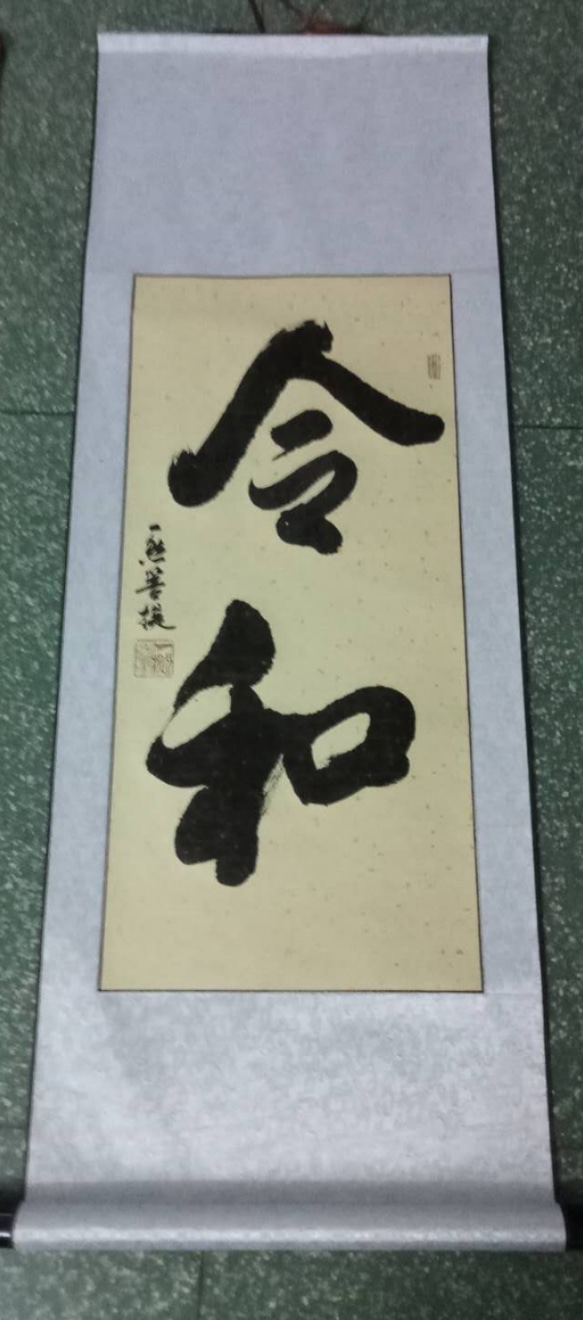 令和
一熙菩提